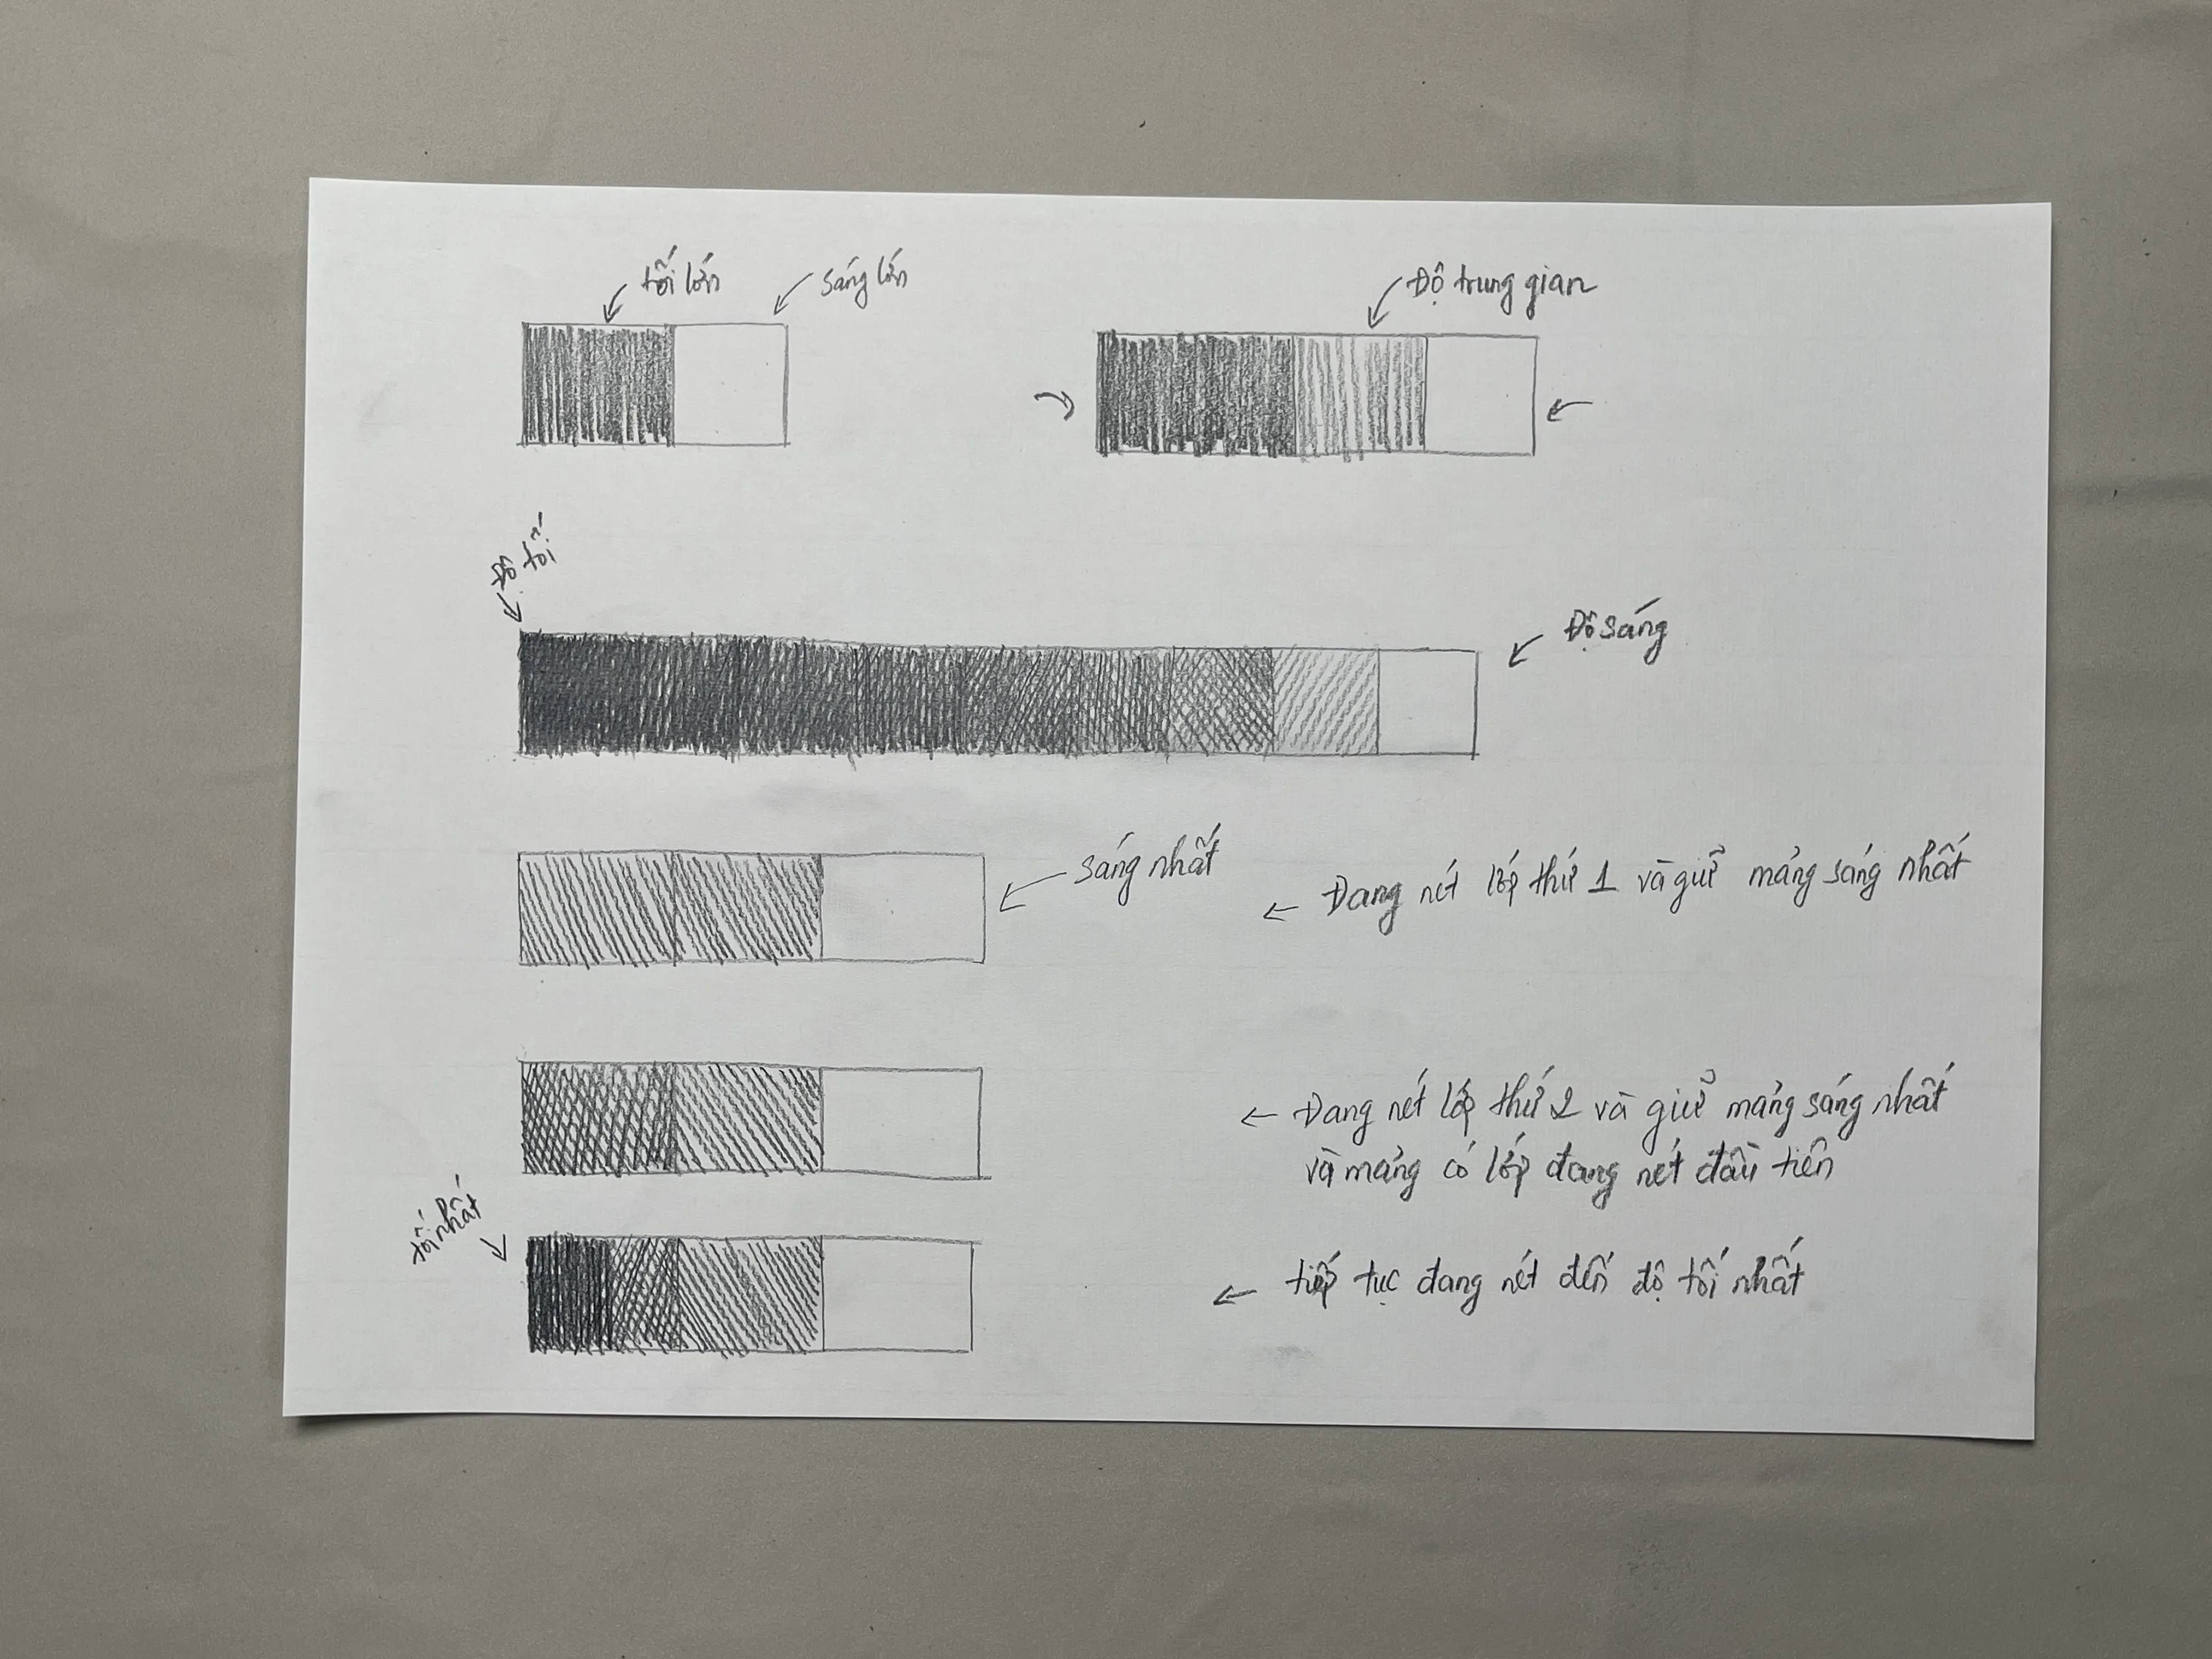 tối lớn
sáng lớn
Độ trung gian
Độ tối
Độ sáng
sáng nhất
Đang nét lớp thứ 1 và giữ mảng sáng nhất
Đang nét lớp thứ 2 và giữ mảng sáng nhất
và mảng có lớp đang nét đầu tiên
tối nhất
tiếp tục đang nét đến độ tối nhất